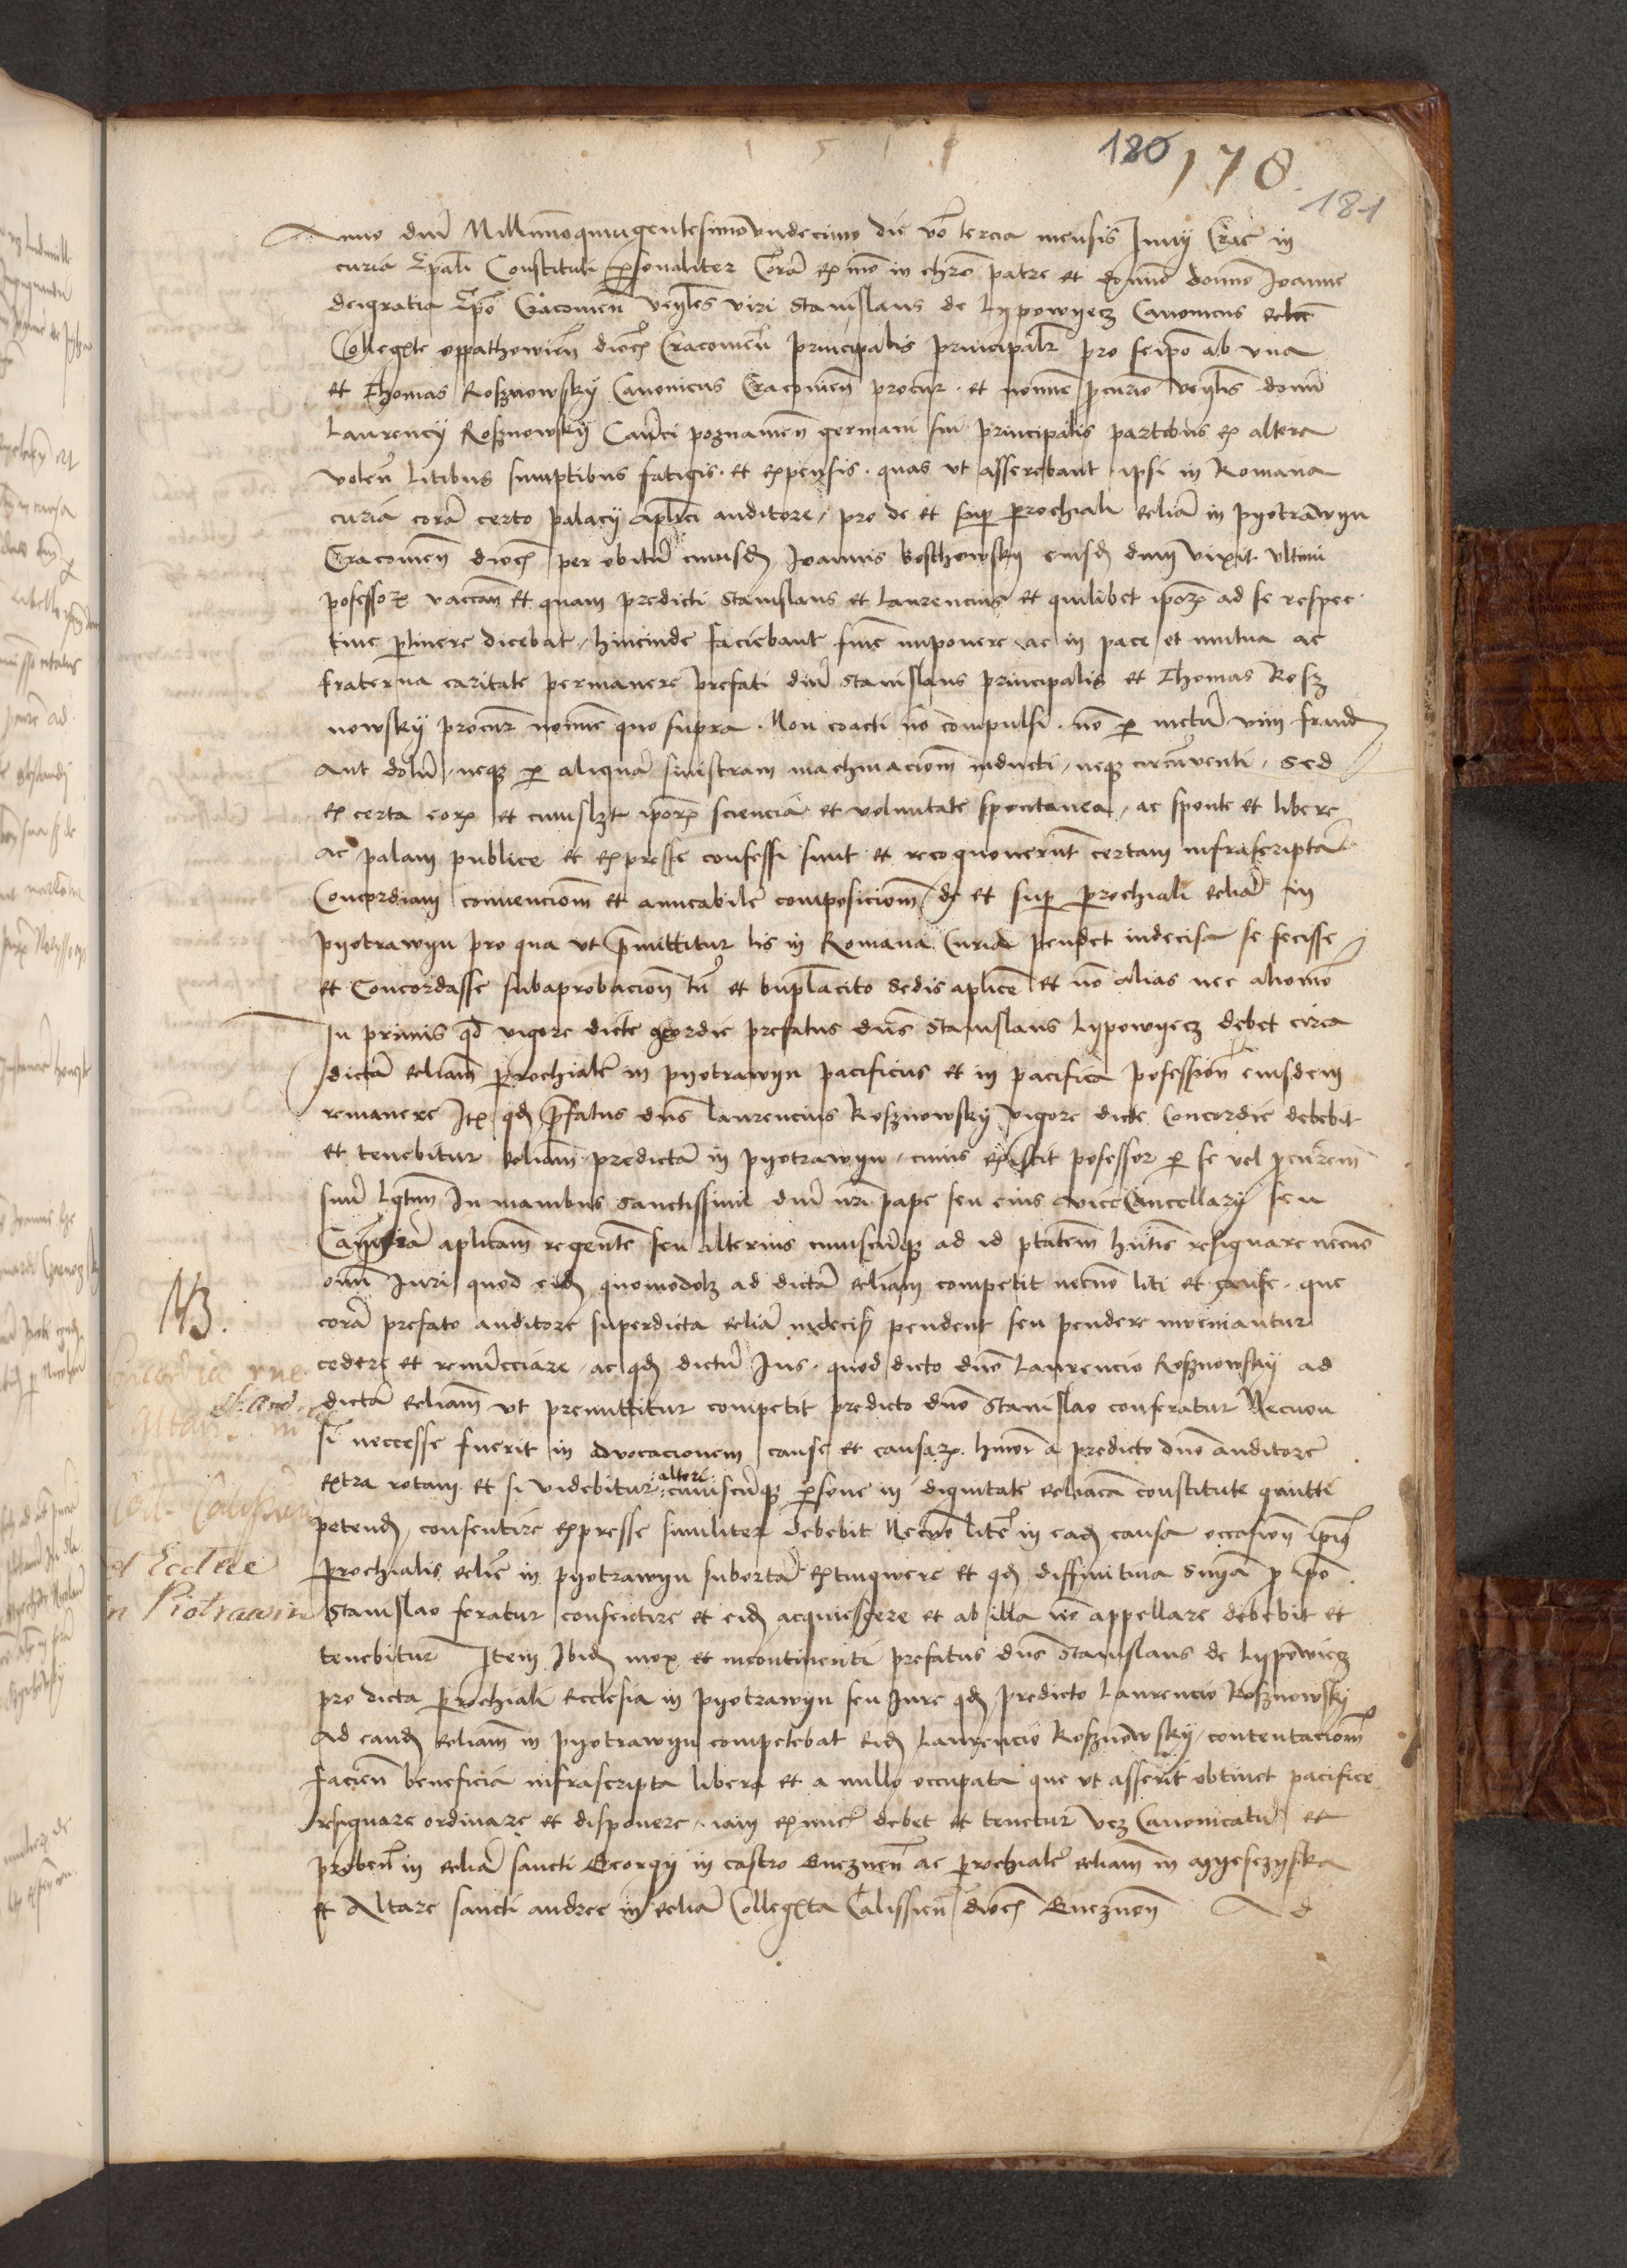 180 178
181
Anno dm̄ Millimoquingentesimoundecimo die vo tercia mensis Junij Crac̄ in
curia Ep̄ali Constituti personaliter Corā Rx̄mo in chro patre et domino domino Joanne
deigratia Ep̄o Cracovien̄ ven̄les viri Stanislaus de Lypowyecz Canonicus ecl̄ie
Colleg̃te oppathowien̄ dioc̄ Cracovien̄ principalis principalr̄ pro seip̄o ab vna
et Thomas Rosznowsky Canonicus Cracovien̄ procur̄ et nomine p̄curio ven̄lis domi
Laurency Rosznowsky Can̄ci poznanien̄ germani sui principalis partibus ex altera
volen̄ litibus sumptibus fatigis et expensis quas vt asserebant ipsi in Romana
curia corā certo palacij aplīci auditore pro de et sup̄ p̄rochiali ecl̄ia in pyotrawyn
Cracovien̄ dioc̄ per obitū cuiusd̄ Joannis boschowsky eiusd̄ dum vixit vltimi
possessor̄ vacan̄ et quam predicti Stanislaus et Laurencius et quilibet ipor̄ ad se respec
tiue p̄tinere dicebat hincinde faciebant fine imponere ac in pace et mutua ac
fraterna caritate permanere prefati dm̄ Stanislaus principalis et Thomas Rosz
nowsky procur̄ nomine quo supra Non coacti no compulsi no p̄ metū vim fraud̄
aut dolū neq̄ p̄ aliquā sinistram machinaciom̄ inducti neq̄ circuventi sed
ex certa eor̄ et cuiuslzt ipor̄ sciencia et voluntate spontanea ac sponte et libere
ac palam publice et expresse confessi sunt et recognouerunt certam infrascriptā
Concordiam convenciom̄ et amicabile composiciom̄ de et sup̄ p̄rochiali ecl̄ia in
pyotrawyn pro qua vt p̄mittitur lis in Romana Curia pendet indecisa se fecisse
et Concordasse subaprobacion̄ tn̄ et bn̄placito sedis aplīce et no alias nec aliomo
In primis qd̄ vigore dicte ꝯcordie prefatus dn̄s Stanislaus Lypowyecz debet circa
dictā ecl̄iam p̄rochiale in pyotrawyn pacificus et in pacifica possession̄ eiusdem
remanere Itx̄ qd̄ p̄fatus dn̄s laurencius Rosznowsky vigore dicte Concordie debebit
et tenebitur ecl̄iam predictā in pyotrawyn cuius existit possessor p̄ se vel p̄curem̄
suū lgtm̄ In manibus sanctissimi dm̄ nr̄i pape seu eius viceCancellarij seu
Cancellariā aplīcam̄ regente seu alterius cuiuscūq̄ ad id p̄tatem̄ hn̄tis resignare necno
omī Juri quod eid̄ quomodolz ad dictā ecl̄iam competit necno liti et cause que
corā prefato auditore superdicta ecl̄iā indecis̄ pendent seu pendere inveniantur
cedere et renūcciare ac qd̄ dictū Jus quod dicto dno Laurencio Rosznowsky ad
dictā ecl̄iam vt premittitur competit predicto dno Stanislao conferatur Necnon
si neccesse fuerit in advocacionem cause et causar̄ hmoi a predicto dno auditore
extra rotam et si videbitur alteri cuiuscūq̄ p̄sone in dignitate ecl̄iaca constitute
petend̄ consentire expresse similiter debebit Necno lite in ead̄ causa occasion̄ ip̄ius
p̄rochialis ecl̄ie in pyotrawyn subortā extingwere et qd̄ diffinitiua sn̄ia p̄ ip̄o
Stanislao feratur consentire et eid̄ acquiescere et ab illa no appellare debebit et
tenebitur Item Ibid̄ mox et incontinenti prefatus dn̄s Stanislaus de Lypowiecz
pro dicta p̄rochiali ecclesia in pyotrawyn seu Jure qd̄ predicto Laurencio Rosznowsky
Ad eand̄ ecl̄iam in pyotrawyn competebat Eid̄ Laurencio Rosznowsky contentaciom̄
facien̄ beneficia infrascripta libera et a nullo occupata que vt asserit obtinet pacifice
resignare ordinare et disponere iam exnunc debet et tenetur vcz Canonicatū et
preben̄ in ecl̄ia sancti Georgij in castro Gnezn̄en̄ ac p̄rochiale ecl̄iam in
et Altare sancti andree in ecl̄ia Colleg̃ta Calissien̄ dioc̄ Gneznen̄ Ad
NB.
Concordia
altar. in
St. Andr.
et Ecclae
in Piotrawin